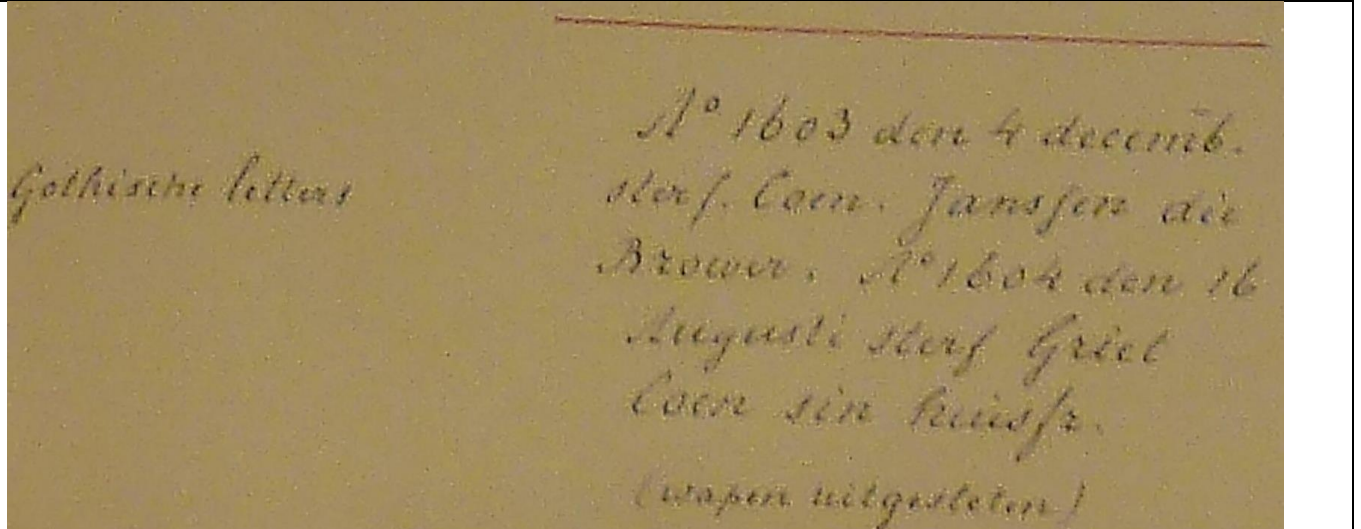 Gothische letters
Aº 1603 den 4 decemb.
sterf. Coen. Janssen die
Brower. Aº 1604 den 16
Augusti sterf Griet
Coen sin huisfr.
(wapen uitgesleten)